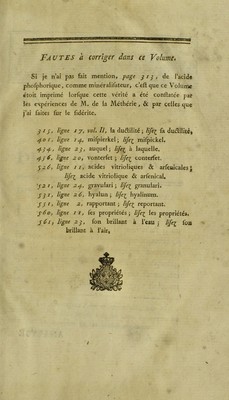 FAUTES à corriger dans ce Volume.
Si je n'ai pas fait mention, page 313, de l'acide
phosphorique, comme minéralisateur, c'est que ce Volume
étoit imprimé lorsque cette vérité a été constatée par
les expériences de M. de la Méthérie, & par celles que
j'ai faites sur la sidérite.
315, ligne 17, vol. II, la ductilité; lisez sa ductilité,
401, ligne 14, mispierkel; lisez mispickel.
454, ligne 23, auquel; lisez à laquelle.
456, ligne 20, vonterset; lisez conterfet.
526, ligne 11; acides vitrioliques & arsenicales;
lisez acide vitriolique & arsenical.
521, ligne 24, gravulari; lisez granulari.
531, ligne 26, hyalun; lisez hyalinum.
551, ligne 2, rapportant; lisez reportant.
560, ligne 11, ses propriétés; lisez les propriétés.
561, ligne 23, son brillant à l'eau; lisez son
brillant à l'air,